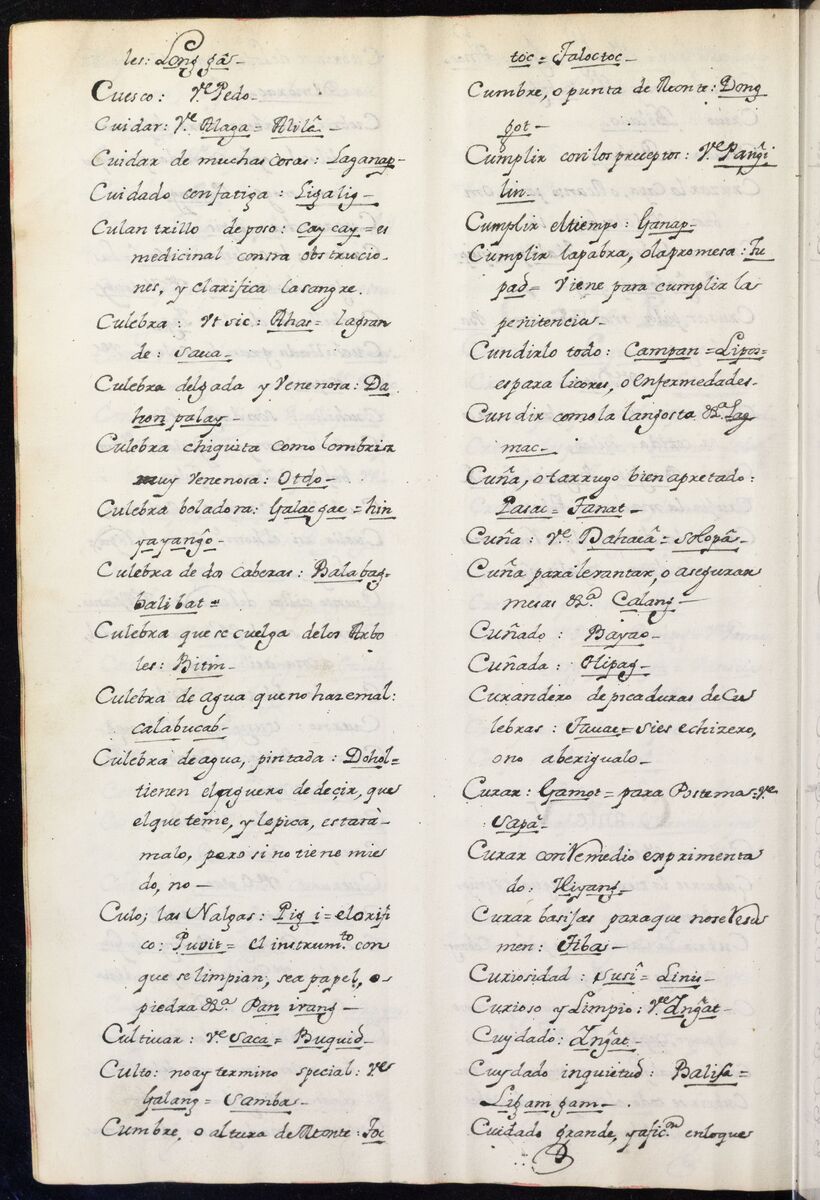 les: Long gâs_
Cuesco: Vᵉ Pedo_
Cuidar: Vᵉ Alaga= Alilâ_
Cuidar de muchas cosas: Laganap_
Cuidado confatiga: Ligalig_
Culan trillo de poso: Cay cay= es
medicinal contra obstrucio-
nes, y clarifica lasangre.
Culebra: Ut sic: Ahas= lagran
de: Saua_
Culebra delgada y Venenosa: Da
hon palay_
Culebra chiquita como lombriz
muy Venenosa: Otdo_
Culebra boladora: Galacgac= hin
yayangô_
Culebra de dos cabezas: Balabag-
balibat=
Culebra que se cuelga delos Arbo
les: Bitin_
Culebra de agua que no haze mal:
calabucab_
Culebra de agua, pintada: Dohol=
tienen el aguero de decir, que
el que teme, y lo pica, estarà
malo, pero si no tiene mie
do, no_
Culo; las Nalgas: Pig i= el orifi
co: Puvit= el instrumᵗᵒ con
que se limpian, sea papel, o
piedra &ᵃ Pan ivang_
Cultivar: Vᵉ Saca= Buquid_
Culto: no ay termino special: Vᵉ
Galang= Samba_
Cumbre, o altura de Monte: Toc
toc= Taloctoc_
Cumbre, o punta de Monte: Dong
pot_
Cumplir con los preceptos: Vᵉ Pangi
lin_
Cumplir el tiempo: Ganap_
Cumplir lapabra, olapromesa: Tu
pad= Viene para cumplir la
penitencia_
Cundirlo todo: Campan= Lipos=
es para licores, o enfermedades_
Cundir como la langosta &ᵃ Lag
mac_
Cuña, o tarrugo bien apretado:
Pasac= Tanat_
Cuña: Vᵉ Bahacâ= solopâ_
Cuña paralevantar, o asegurar
mesas &ᵃ Calang_
Cuñado: Bayao_
Cuñada: Hipag_
Curandero de picaduras de Cu
lebras: Tauac= si es echizero,
o no aberigualo_
Curar: Gamot= para Postemas: Vᵉ
: Sapâ_
Curar con Remedio exprimenta
do: Hiyang_
Curar basijas para que nose Resu
men: Tiba_
Curiosidad: Susî= Linis_
Curioso y Limpio: Vᵉ Ingat_
Cuydado: Ingat_
Cuydado inquietud: Balisa=
Ligam gam_
Cuidado grande, y aficᵒⁿ enloque